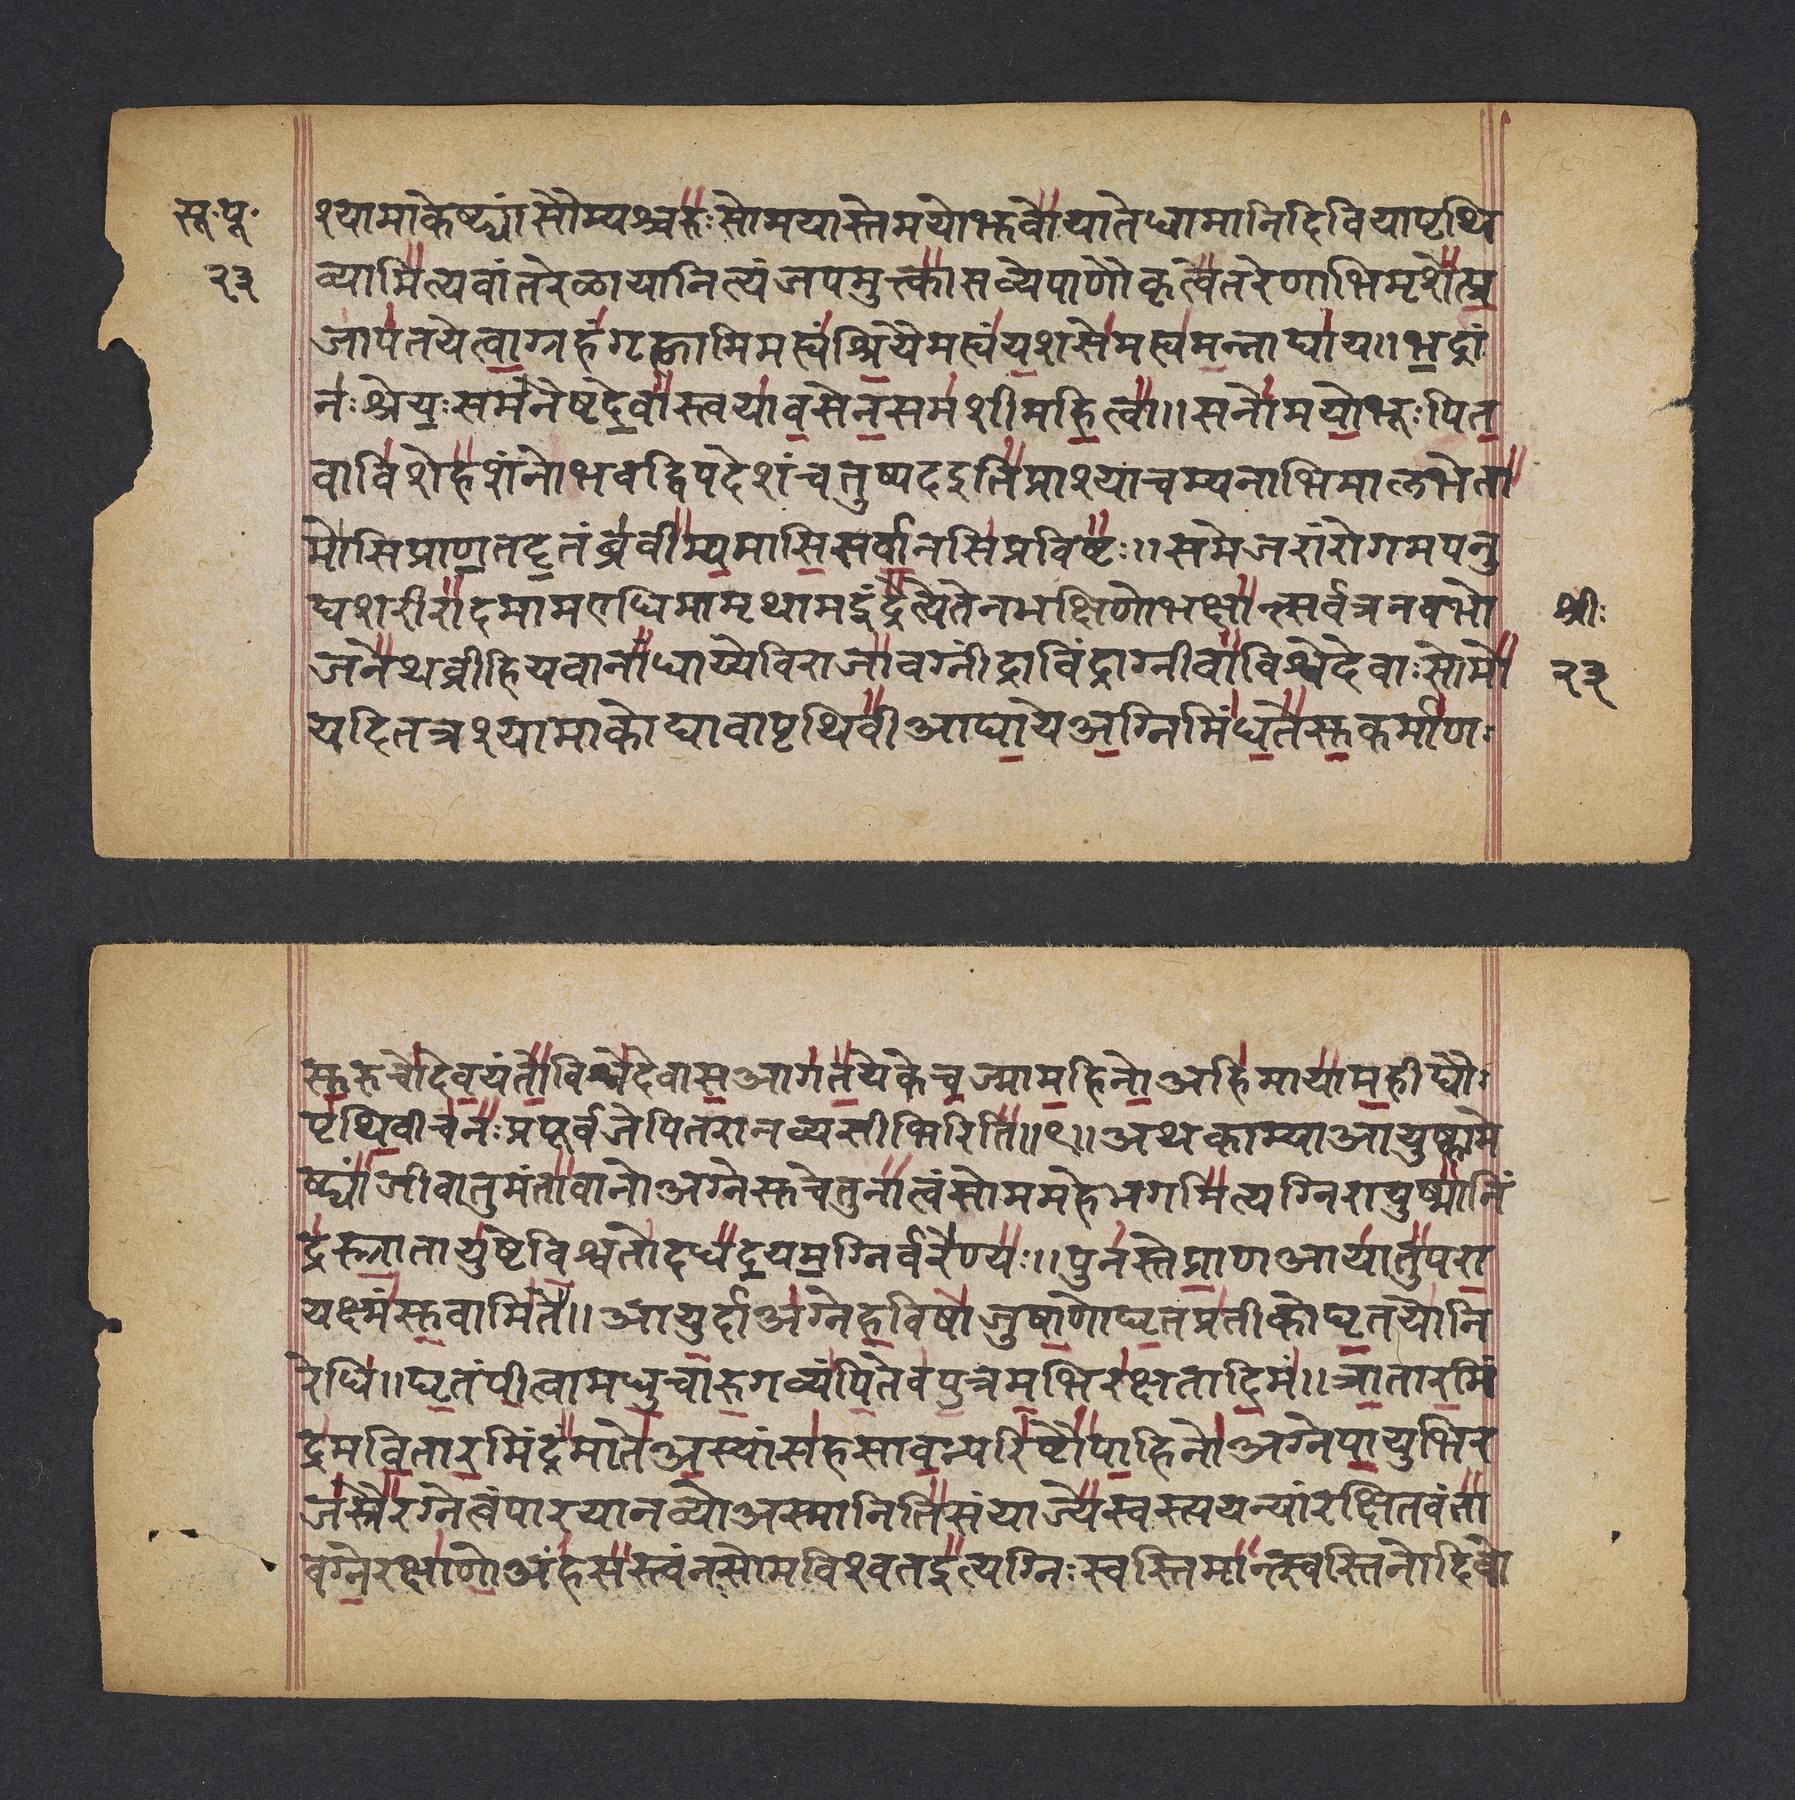 सू॰पू॰
२३
श्यामाकेष्ट्यांसौम्यश्चरुःसोमयास्तेमयोभुवोयातेधामानिदिवियापृथि
व्यामित्यवांतरेळायानित्यंजपमुत्त्कासव्येपाणौकृत्वेतरेणाभिमृशेत्प्र
जापतयेत्वाग्रहंगृह्णामिमह्यंश्रियैमह्यंयशसेमह्यमन्नाद्याय॥भद्रां
नःश्रेयःसमनैष्टदेवास्त्वयावसेनसमशीमहित्वा॥सनोमयोभूःपित
वाविशेहशंनोभवद्विपदेशंचतुष्पदइतिप्राश्याचम्यनाभिमालभेता
मोसिप्राणतदृतंब्रवीम्यमासिसर्वानसिप्रविष्टः॥समेजरांरोगमपनु
द्यशरीरादमामएधिमामृथामइंद्रेत्येतेनभक्षिणोभक्षान्त्सर्वत्रनवभो
जनेथव्रीहियवानांधाय्येविराजावग्नींद्राविंद्राग्नीवाविश्वेदेवाःसोमो
यदितत्रश्यामाकोद्यावापृथिवीआघायेअग्निमिंधतेसुकर्माणः
श्रीः
२३
सुरुचोदेवयंतोविश्वेदेवासआगतयेकेचज्मामहिनोअहिमायामहीद्यौः
पृथिवीचनःप्रपूर्वजेपितरानव्यसीभिरिति॥९॥अथकाम्याआयुष्कामे
ष्ट्यांजीवातुमंतावानोअग्नेसुचेतुनात्वंसोममहेभगमित्यग्निरायुष्मानिं
द्रस्त्रातायुष्टेविश्वतोदधदयमग्निर्वरेण्यः॥पुनस्तेप्राणआयातुपरा
यक्ष्मंसुवामिते॥आयुर्दाअग्नेहविषोजुषाणोघृतप्रतीकोघृतयोनि
रेधि॥घृतंपीत्वामधुचारुगव्यंपितेवपुत्रमभिरक्षतादिमं॥त्रातारमिं
द्रमवितारमिंद्रंमातेअस्यांसहसावन्परिष्टौपाहिनोअग्नेपायुभिर
जस्रैरग्नेत्वंपारयानव्योअस्मानितिसंयाज्येस्वस्त्ययन्यांरक्षितवंता
वग्नेरक्षाणोअंहसस्त्वंनसोमविश्वतइत्यग्निःस्वस्तिमान्त्स्वस्तिनोदिवो